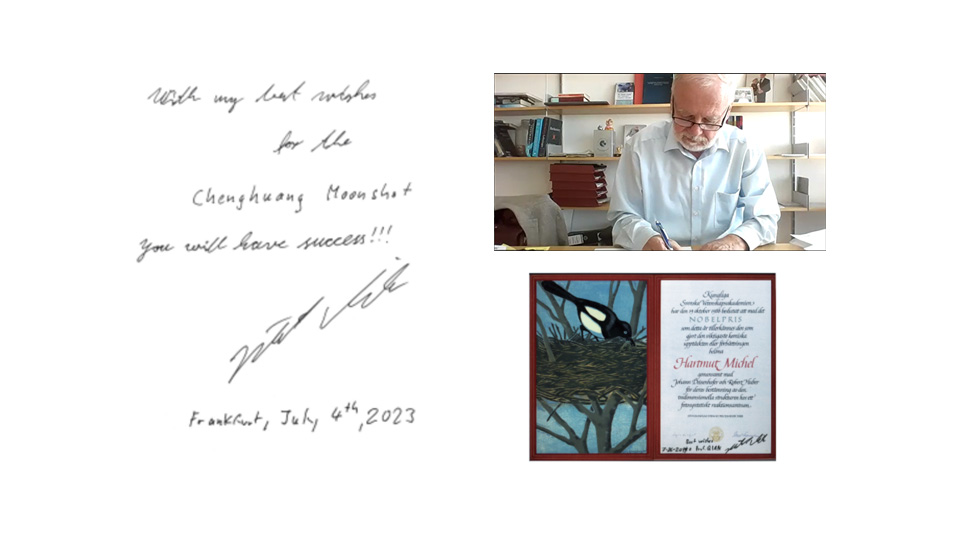 With my best wishes
for the
Chenghuang Moonshot
You will have success!!!
Frankfurt, July 4th, 2023
Kungliga
Svenska Vetenskapsakademien
har den 19 oktober 1988 beslutat att med det
NOBELPRIS
som detta år tillerkännes den som
gjort den viktigaste kemiska
upptäckten eller förbättringen
belöna
Hartmut Michel
gemensamt med
Johann Deisenhofer och Robert Huber
för deras bestämning av den
tredimensionella strukturen hos ett
fotosyntetiskt reaktionscentrum
Best wishes